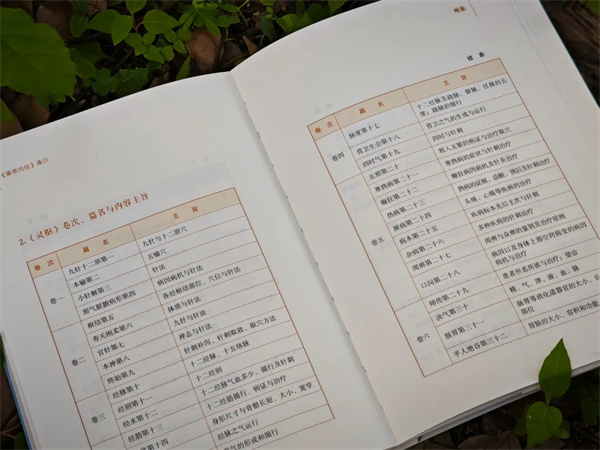 《黄帝内经》通识
2.《灵枢》卷次、篇名与内容主旨
卷次 篇名 主旨
卷一 九针十二原第一 九针与十二原穴
本输第二 五输穴
小针解第三 针法
邪气脏腑病形第四 病因病机与针法
卷二 根结第五 各经根结部位、穴位与针法
寿夭刚柔第六 体质与针法
官针第七 九针与针法
本神第八 神志与针法
终始第九 针刺补泻、针刺取效、取穴方法
卷三 经脉第十 十二经脉、十五络脉
经别第十一 十二经别
经水第十二 十二经脉气血多少、循行及针刺
经筋第十三 十二经筋循行、病证与治疗
骨度第十四 身形尺寸与骨骼长短、大小、宽窄
经脉之气运行
气的形成和循行
附表
续表
卷次 篇名 主旨
卷四 脉度第十七 十二经脉及跷脉、督脉、任脉的长
度；跷脉的循行
营卫生会第十八 营卫之气的生成与运行
四时气第十九 四时与针刺
卷五 五邪第二十 邪入五脏的病证与治疗取穴
寒热病第二十一 寒热病的症状与针刺治疗
癫狂第二十二 癫狂病因病机及针灸治疗
热病第二十三 热病的证候、诊断、预后及针刺治疗
厥病第二十四 头痛、心痛等疾病的治疗
病本第二十五 疾病标本先后主次与针刺
杂病第二十六 多种疾病的针刺治疗
周痹第二十七 周痹与众痹的鉴别及治疗原则
口问第二十八 病因以及身体上部空窍病变的病因
病机与治疗
卷六 师传第二十九 患者所恶所欲与治疗；望诊
决气第三十 精、气、津、液、血、脉
肠胃第三十一 肠胃等消化道器官的大小、长
部位
平人绝谷第三十二 胃肠的大小、容积和功能